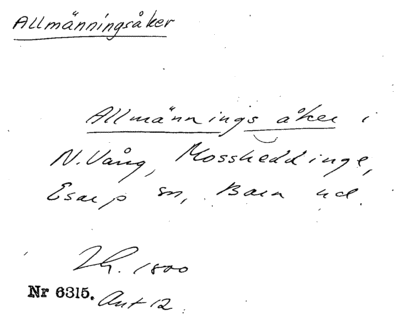 Allmänningsåker
Allmännings åker i
N. Vång, Mossheddinge,
Esarp sn, Bara hd.
1800
Nr 6315. Akt 12.